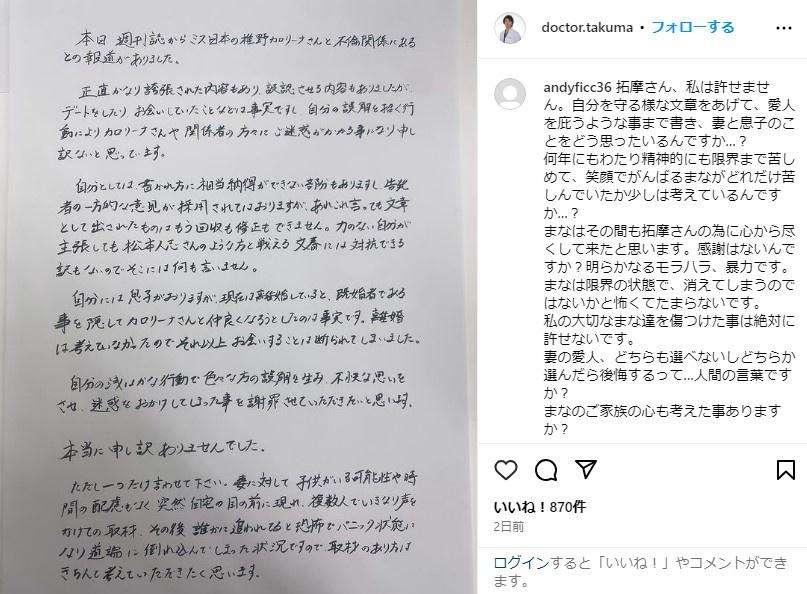 本日 週刊誌からミス日本の椎野カロリーナさんと不倫関係にある
との報道がありました。
正直かなり誇張された内容もあり 誤認させる内容もありましたが、
デートをしたり お会いしていたことなどは事実ですし、自分の誤解を招く行
動によりカロリーナさんや関係者の方々にご迷惑がかかる事になり申し
訳ないと思っています。
自分としては 書かれ方に相当納得ができない部分もありますし 告発
者の一方的な意見が採用されてはおりますが、あれこれ言っても文章
として出されたものはもう回収も修正もできません。力のない自分が
主張しても松本人志さんのような方と戦える文春には対抗できる
訳もないのでそこには何も言いません。
自分には息子がおりますが、現在は離婚していると、既婚者である
事を隠してカロリーナさんと仲良くなろうとしたのは事実です。離婚
は考えていなかったのでそれ以上お会いすることは断られてしまいました。
自分の浅はかな行動で色々な方の誤解を生み、不快な思いを
させ、迷惑をおかけしてしまった事を謝罪させていただきたいと思います。
本当に申し訳ありませんでした。
ただし一つだけ言わせて下さい。妻に対して 子供がいる可能性や時
間の配慮もなく 突然自宅の目の前に現れ、複数人でいきなり声を
かけての取材、その後 誰かに追われてると恐怖でパニック状態に
なり道端に倒れ込んでしまった状況ですので、取材のあり方は
きちんと考えていただきたく思います。
doctor.takuma • フォローする
andyficc36 拓摩さん、私は許せませ
ん。自分を守る様な文章をあげて、愛人
を庇うような事まで書き、妻と息子のこ
とをどう思ったいるんですか...？
何年にもわたり精神的にも限界まで苦し
めて、笑顔でがんばるまながどれだけ苦
しんでいたか少しは考えているんです
か...？
まなはその間も拓摩さんの為に心から尽
くして来たと思います。感謝はないんで
すか？明らかなるモラハラ、暴力です。
まなは限界の状態で、消えてしまうので
はないかと怖くてたまらないです。
私の大切なまな達を傷つけた事は絶対に
許せないです。
妻の愛人、どちらも選べないしどちらか
選んだら後悔するって...人間の言葉です
か？
まなのご家族の心も考えた事あります
か？
いいね！870件
2日前
ログインすると「いいね！」やコメントができ
ます。